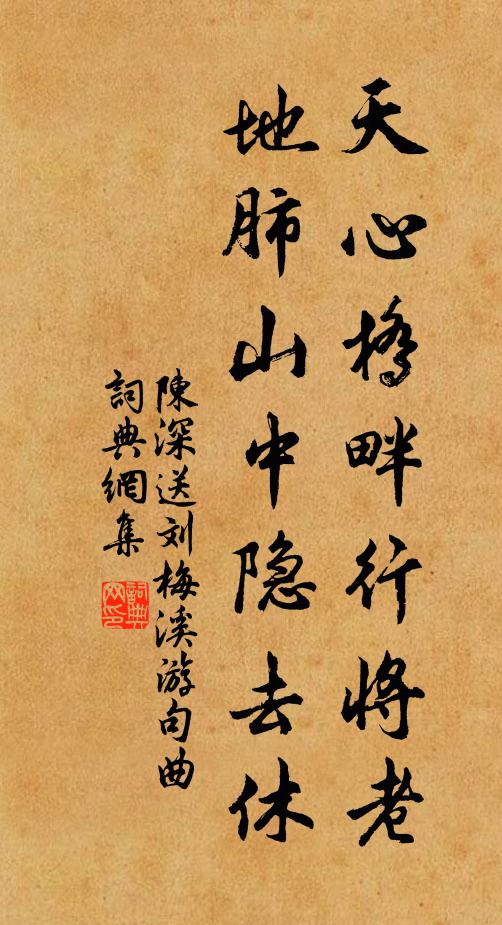 天心橋畔行將老
地肺山中隐去休
陳深送刘梅溪游句曲
詞典網集
詞典網印